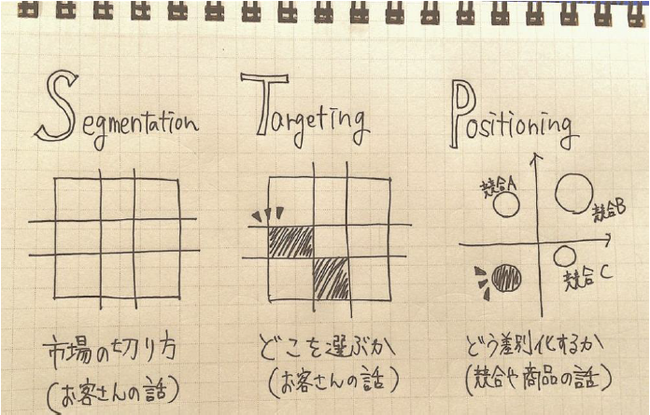 Segmentation
Targeting
Positioning
競合A
競合B
競合C
市場の切り方
(お客さんの話)
どこを選ぶか
(お客さんの話)
どう差別化するか
(競合や商品の話)